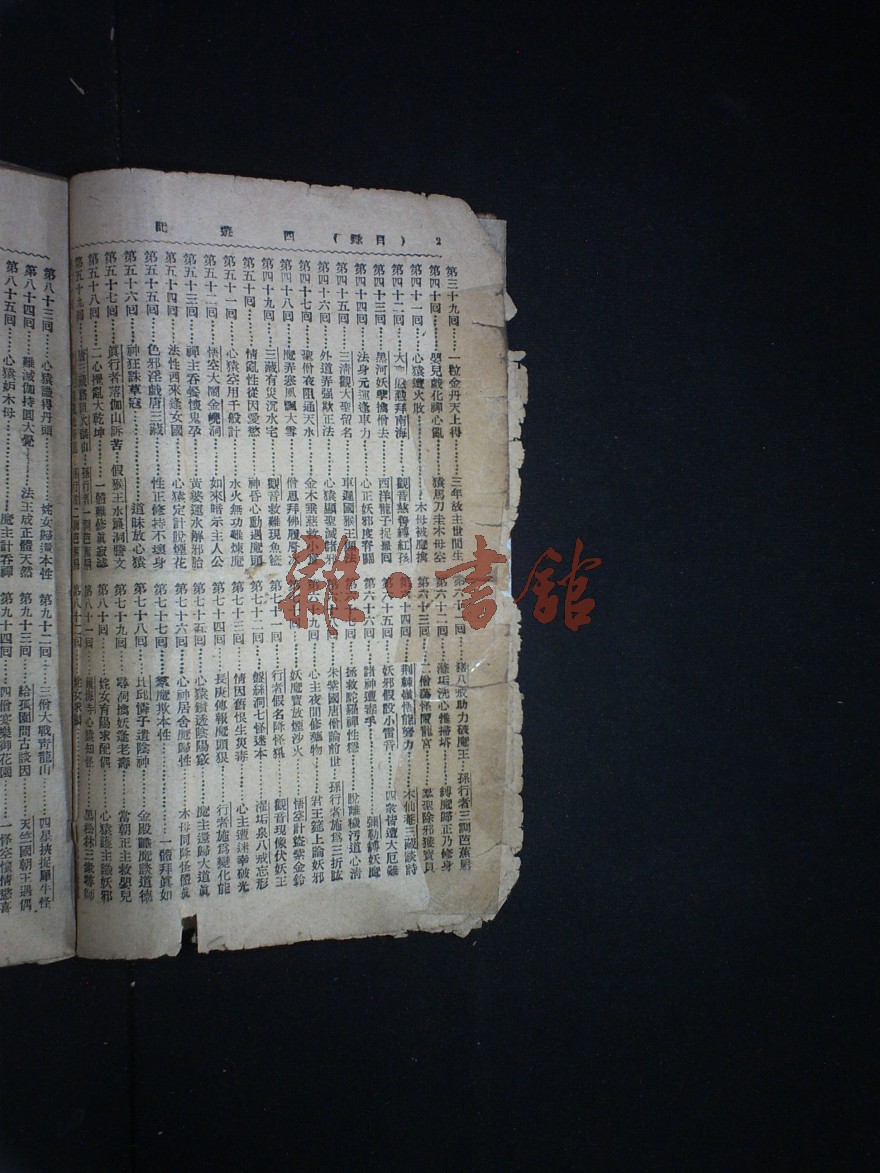 2 (目錄) 西遊記
第三十九回 一粒金丹天上得 三年故主世間生
第四十回 嬰兒戲化禪心亂 猿馬刀圭木母空
第四十一回 心猿遭火敗 木母被魔擒
第四十二回 大 慇懃拜南海 觀音慈善縛紅孩
第四十三回 黑河妖孽擒僧去 西洋龍子捉鼉回
第四十四回 法身元運逢車力 心正妖邪度脊關
第四十五回 三清觀大聖留名 車遲國猴王 法
第四十六回 外道弄強欺正法 心猿顯聖滅諸邪
第四十七回 聖僧夜阻通天水 金木垂慈救小童
第四十八回 魔弄寒風飄大雪 僧思拜佛履層
第四十九回 三藏有災沉水宅 觀音救難現魚籃
第五十回 情亂性從因愛慾 神昏心動遇魔頭
第五十一回 心猿空用千般計 水火無功難煉魔
第五十二回 悟空大鬧金𠒇洞 如來暗示主人公
第五十三回 禪主吞餐懷鬼孕 黃婆運水解邪胎
第五十四回 法性西來逢女國 心猿定計脫煙花
第五十五回 色邪淫戲唐三藏 性正修持不壞身
第五十六回 神狂誅草寇 道昧放心猿
第五十七回 眞行者落伽山訴苦 假猴王水簾洞謄文
第五十八回 二心攪亂大乾坤 一體難修眞寂滅
第五十九回 唐三藏路阻火燄山 孫行者一調芭蕉扇
第六十一回 豬八戒助力破魔王 孫行者三調芭蕉扇
第六十二回 滌垢洗心惟掃塔 縛魔歸正乃修身
第六十三回 二僧蕩怪鬧龍宮 羣聖除邪獲寶貝
第六十四回 荊棘嶺悟能努力 木仙菴三藏談詩
第六十五回 妖邪假設小雷音 四衆皆遭大厄難
第六十六回 諸神遭毒手 彌勒縛妖魔
第六十七回 拯救駝羅禪性穩 脫離穢汚道心清
第六十八回 朱紫國唐僧論前世 孫行者施爲三折肱
第六十九回 心主夜間修藥物 君王筵上論妖邪
第七十回 妖魔寶放煙沙火 悟空計盜紫金鈴
第七十一回 行者假名降怪犼 觀音現像伏妖王
第七十二回 盤絲洞七怪迷本 濯垢泉八戒忘形
第七十三回 情因舊恨生災毒 心主遭迷幸破光
第七十四回 長庚傳報魔頭狠 行者施爲變化能
第七十五回 心猿鑽透陰陽竅 魔主還歸大道眞
第七十六回 心神居舍魔歸性 木母同降怪體眞
第七十七回 羣魔欺本性 一體拜眞如
第七十八回 比邱憐子遣陰神 金殿識魔談道德
第七十九回 尋洞擒妖逢老壽 當朝正主救嬰兒
第八十回 姹女育陽求配偶 心猿護主識妖邪
第八十一回 鎮海寺心猿知怪 黑松林三衆尋師
第八十二回 姹女求陽
第八十三回 心猿識得丹頭 姹女還歸本性
第八十四回 難滅伽持圓大覺 法王成正體天然
第八十五回 心猿妬木母 魔主計吞禪
第九十二回 三僧大戰靑龍山 四星挾捉犀牛怪
第九十三回 給孤園問古談因 天竺國朝王遇偶
第九十四回 四僧宴樂御花園 一怪空懷情慾喜
雜·書館